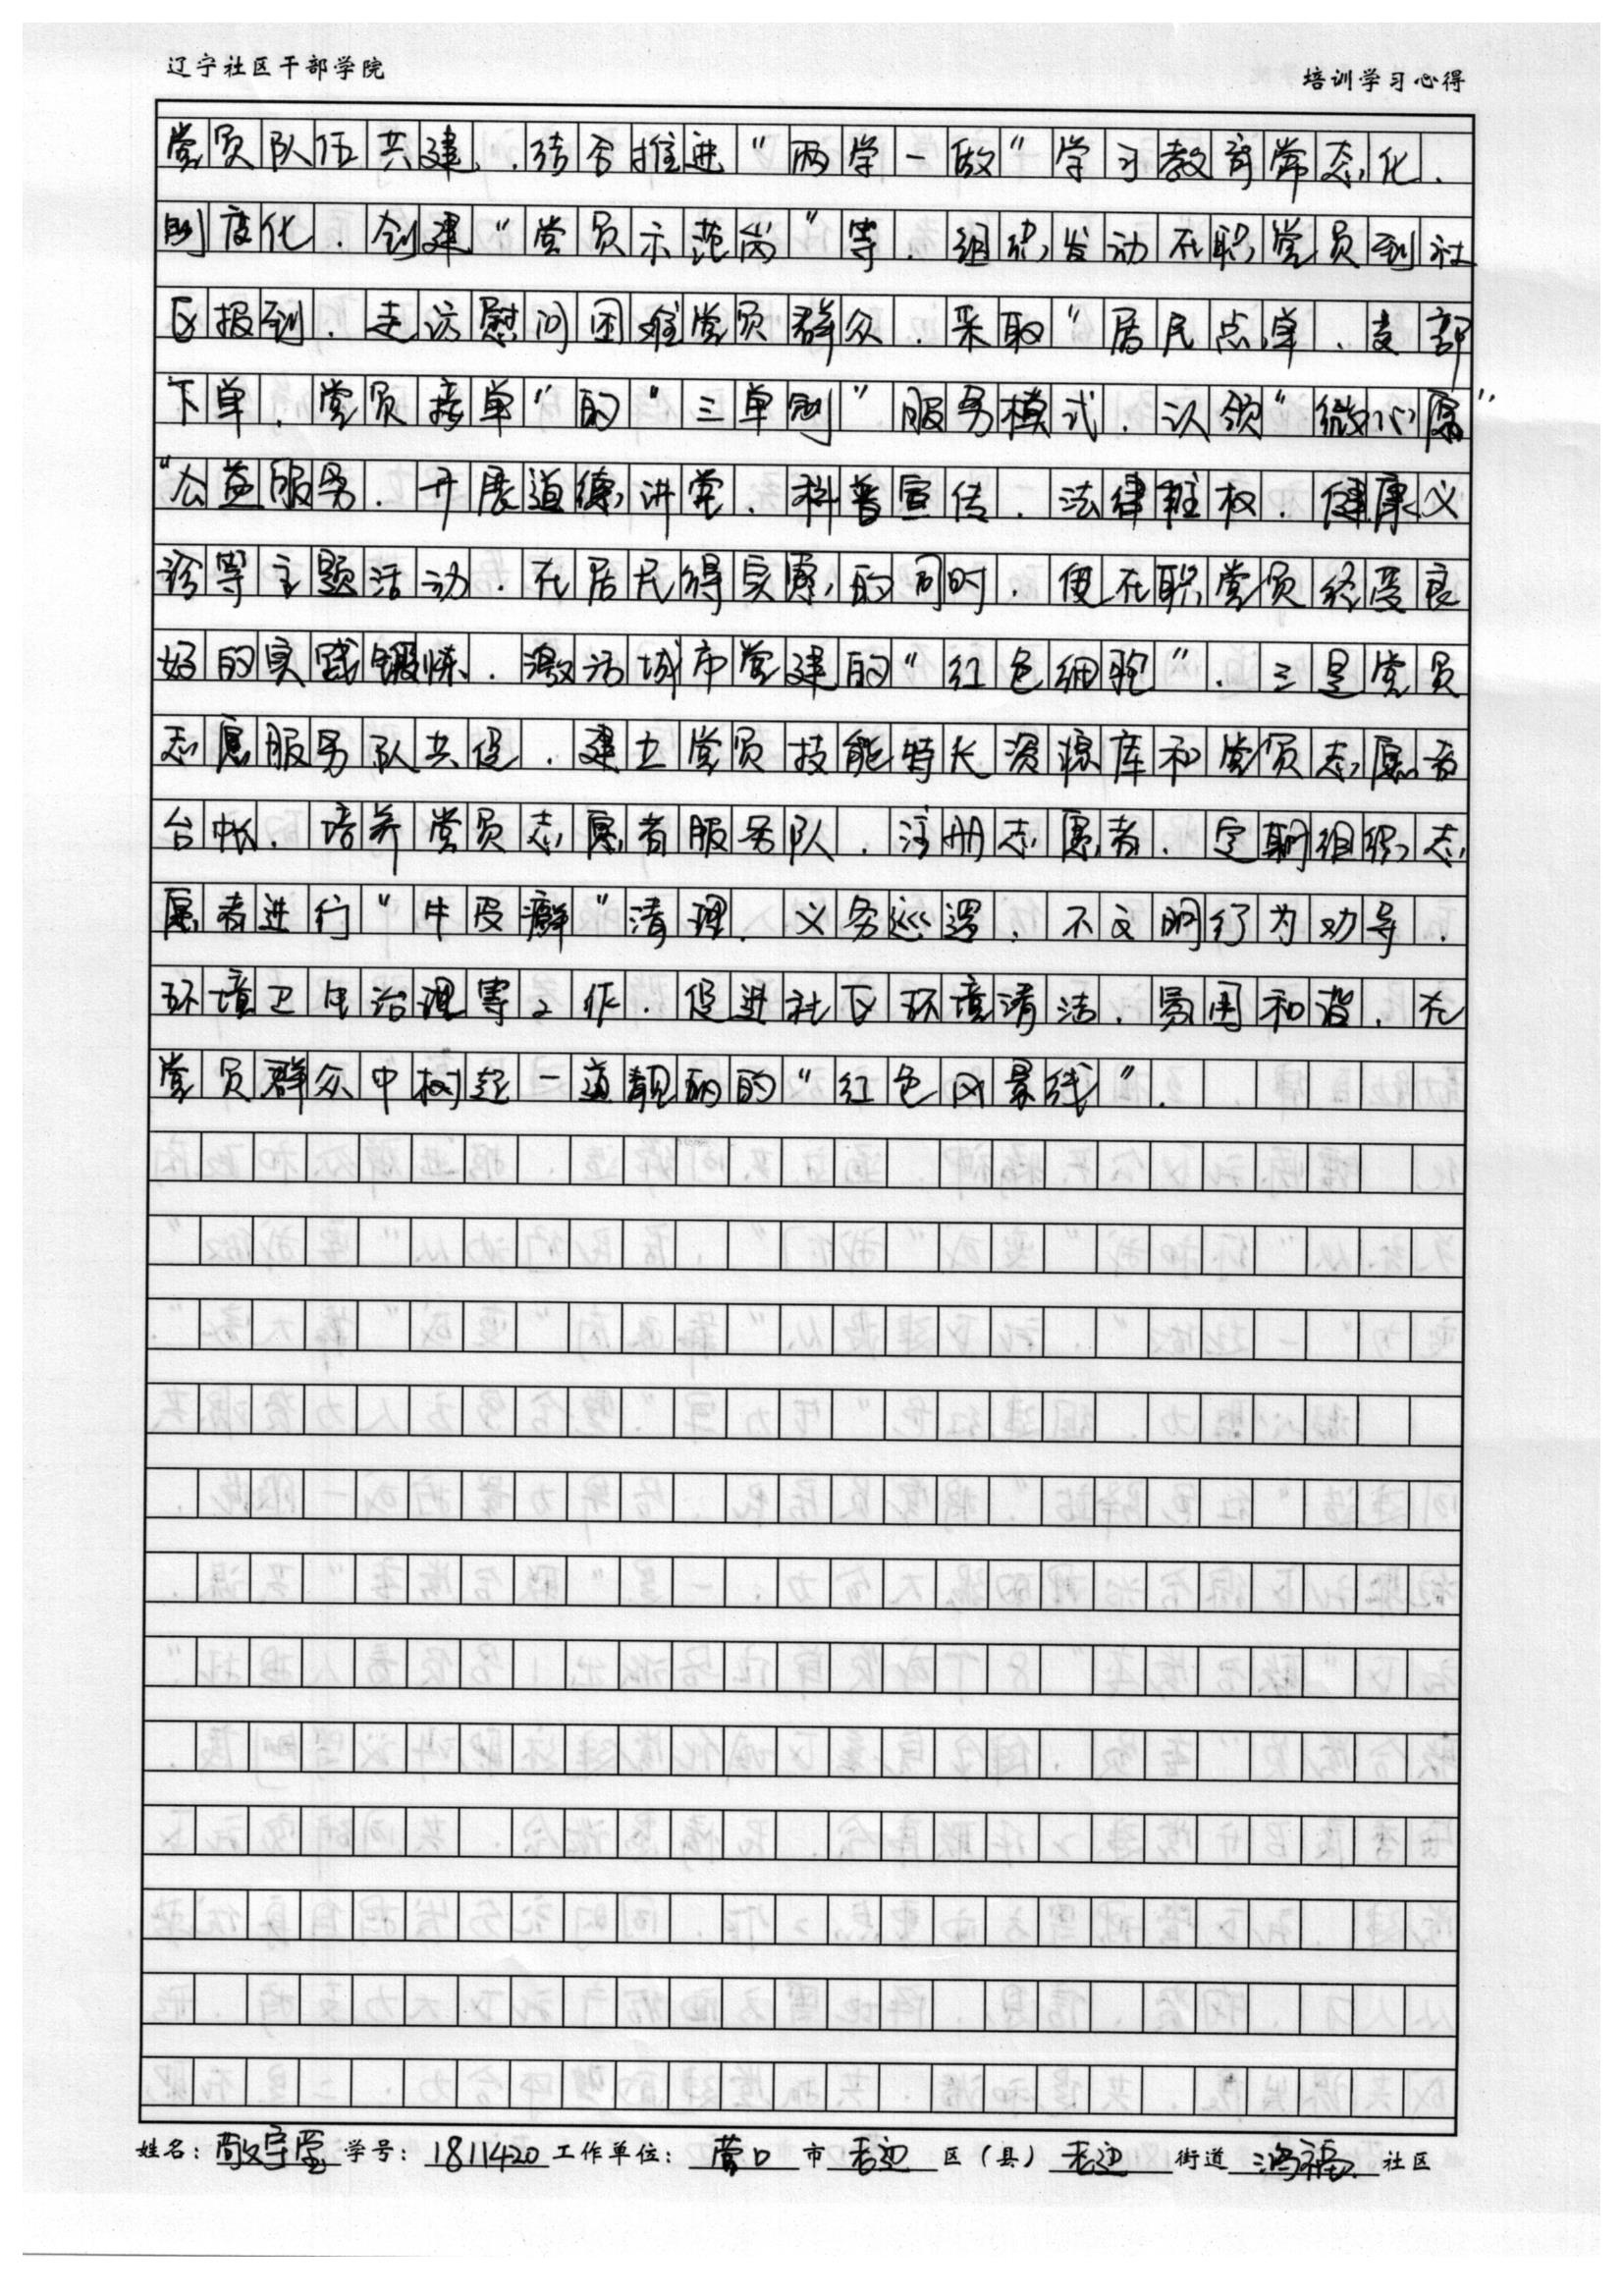 辽宁社区干部学院
培训学习心得
党员队伍共建，结合推进“两学一做”学习教育常态化、
制度化，创建“党员示范岗”等，组织发动在职党员到社
区报到，走访慰问困难党员群众，采取“居民点单、支部
下单、党员接单”的“三单制”服务模式，认领“微心愿”
“公益服务，开展道德讲堂、科普宣传、法律维权、健康义
诊等主题活动，在居民得实惠的同时，使在职党员经受良
好的实践锻炼，激活城市党建的“红色细胞”。三是党员
志愿服务队共促，建立党员技能特长资源库和党员志愿者
台帐，培养党员志愿者服务队，注册志愿者，定期组织志
愿者进行“牛皮癣”清理、义务巡逻、不文明行为劝导、
环境卫生治理等工作，促进社区环境清洁、周围和谐，在
党员群众中树起一道靓丽的“红色风景线”。
姓名：敬宇莹 学号：1811420 工作单位：营口 市 老边 区（县） 老边 街道 鸿福 社区